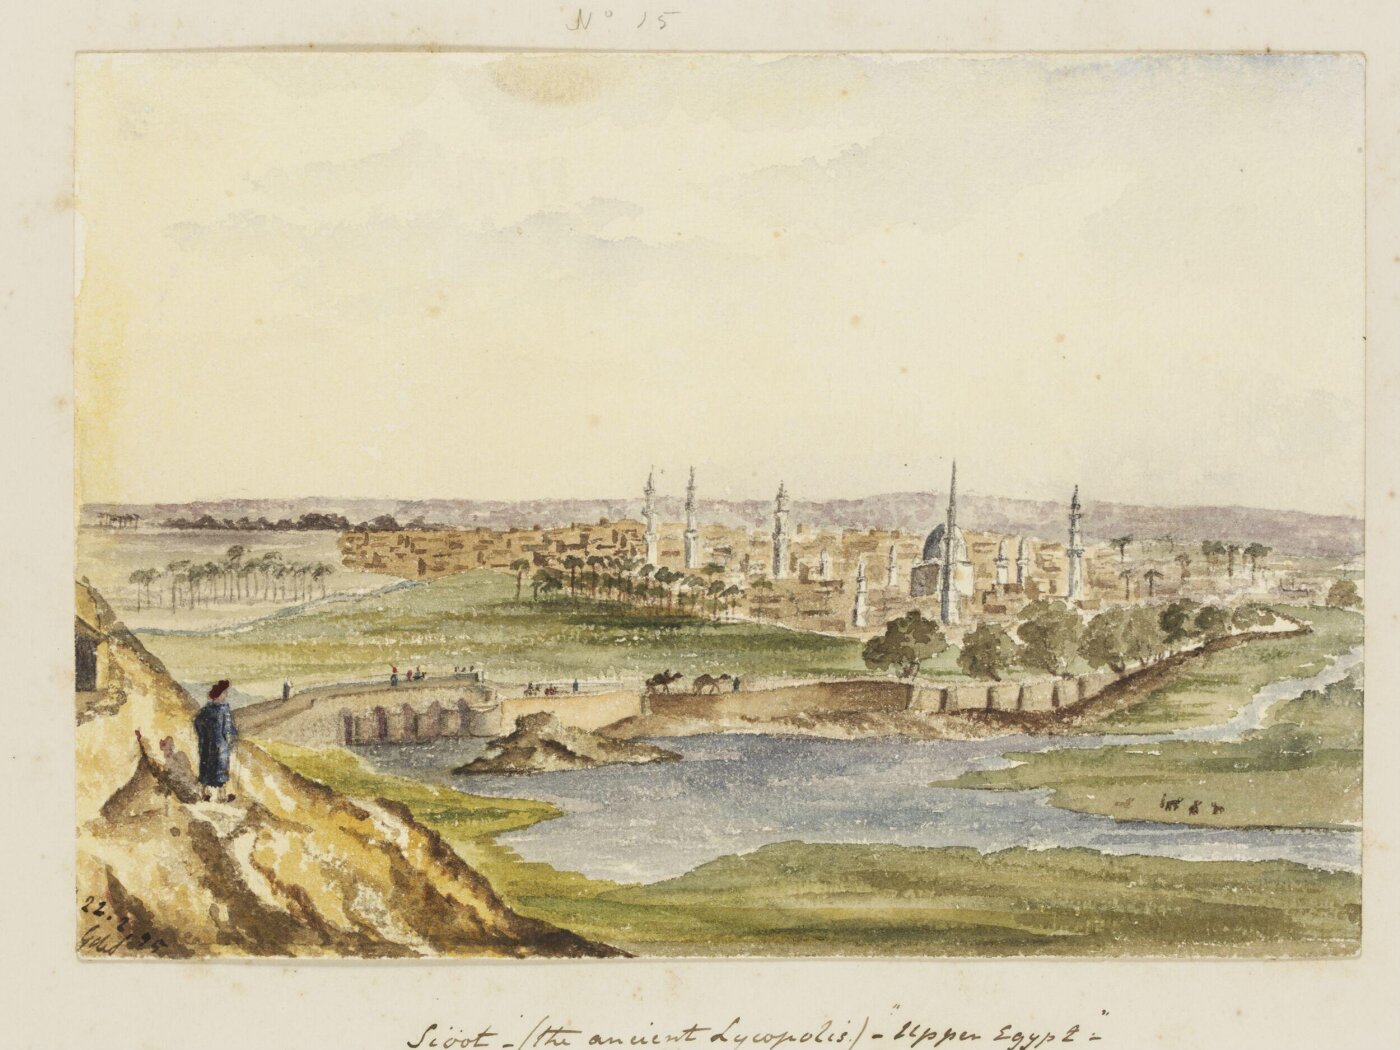 Nº 15
22.2
95
Siöot - (the ancient Lycopolis.) - "Upper Egypt" -